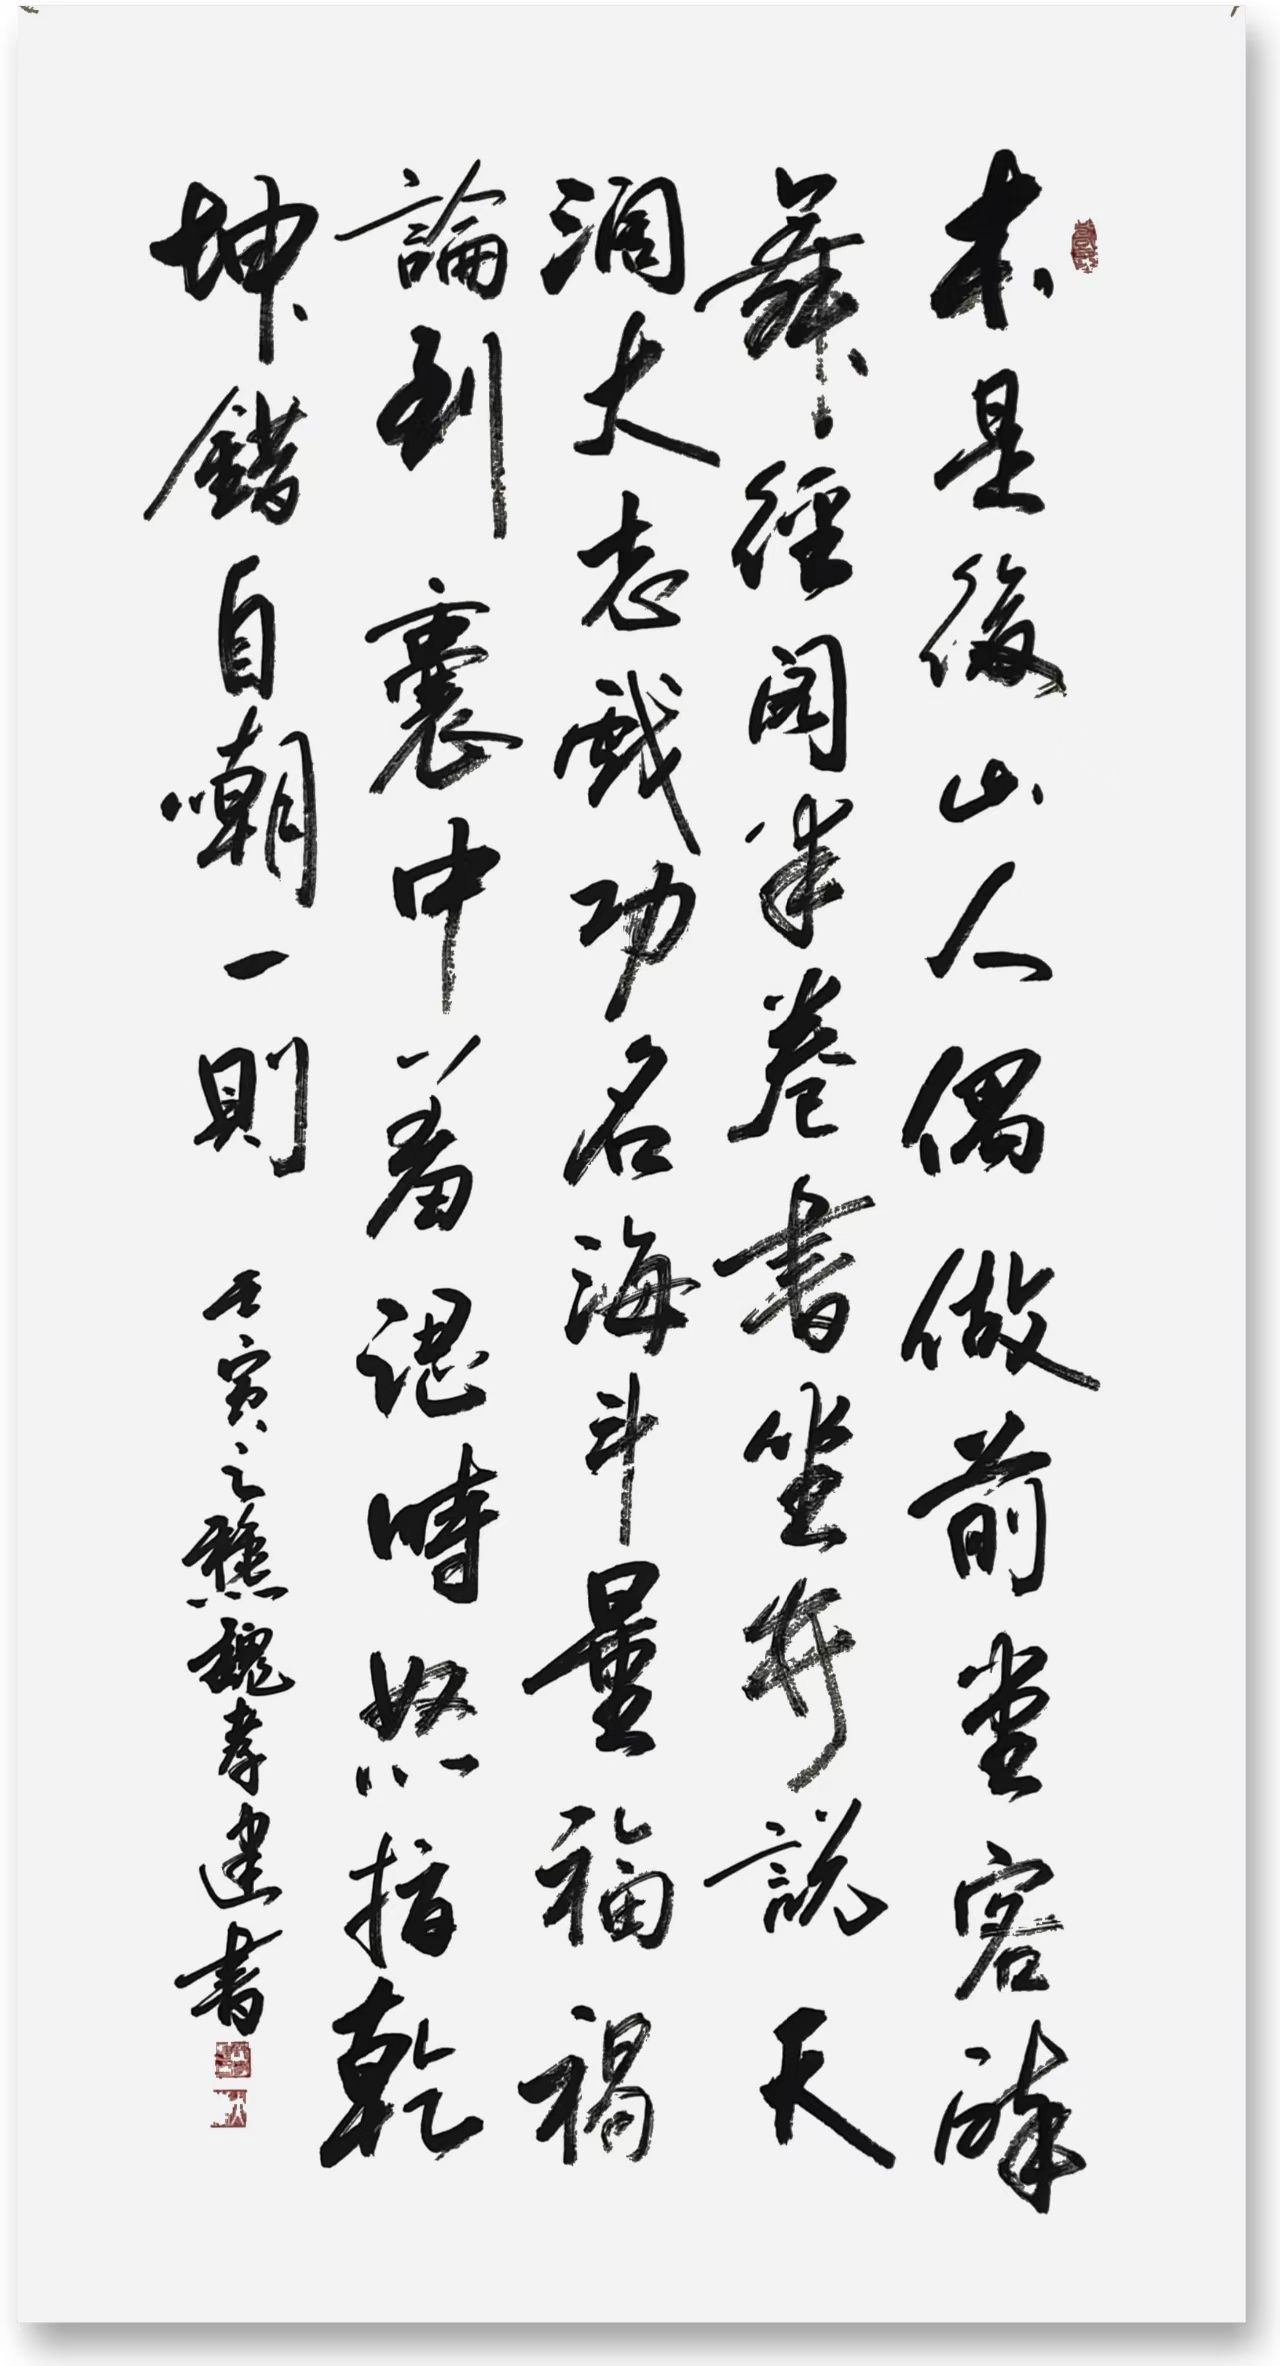 本是後山人偶做前堂客醉
舞經閣半卷書坐井説天
濶大志戲功名海斗量福禍
論到囊中羞澀時怒指乾
坤錯自嘲一則
壬寅之穐魏孝建書